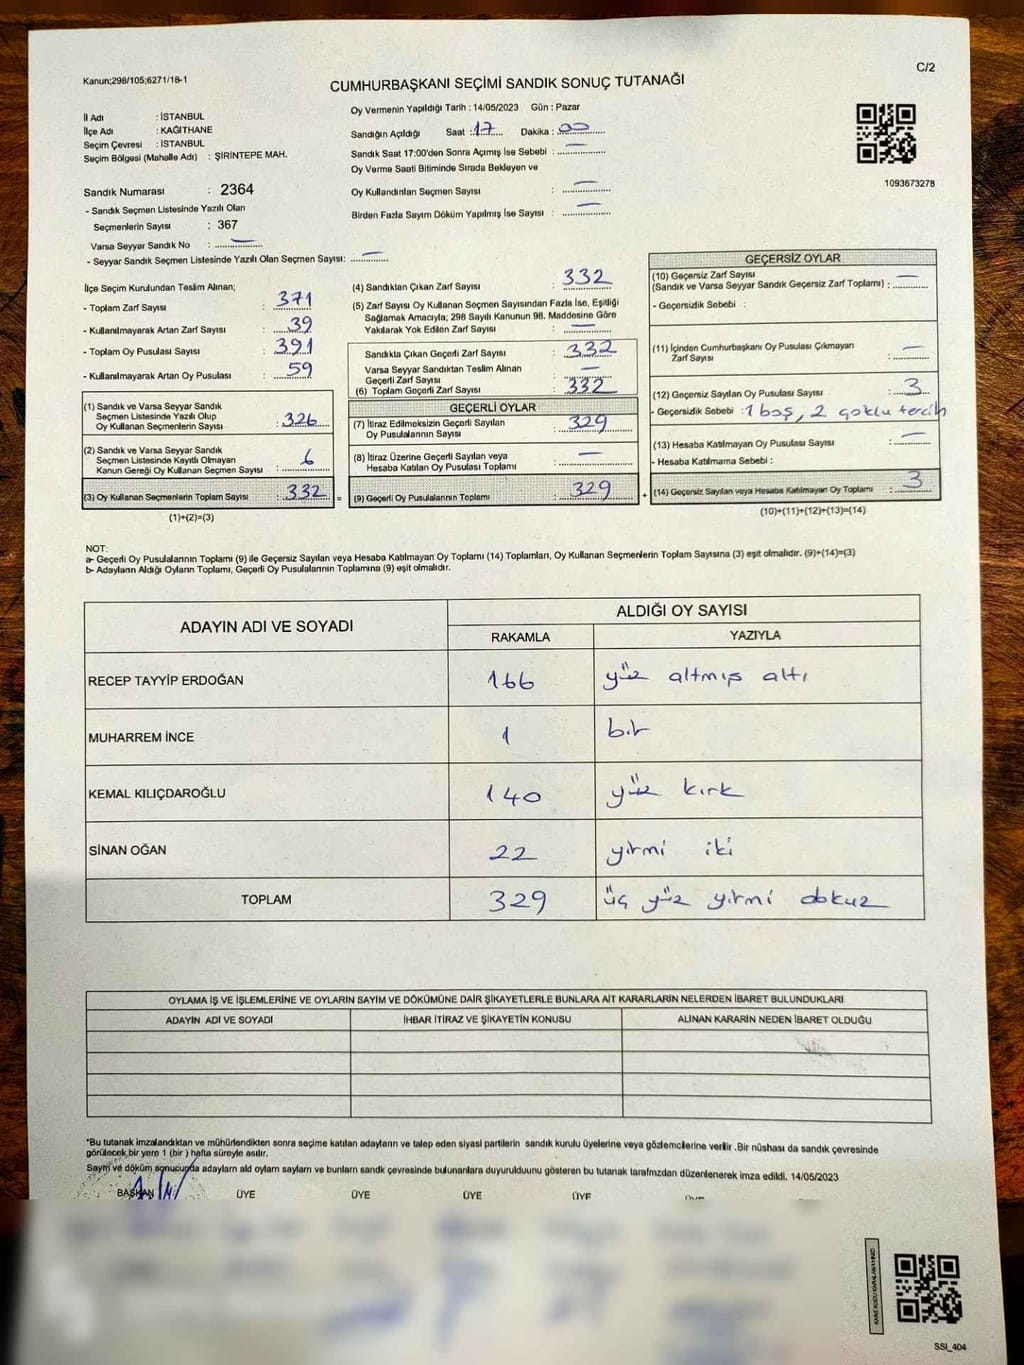 Kanun;298/105;6271/16-1
C/2
CUMHURBAŞKANI SEÇİMİ SANDIK SONUÇ TUTANAĞI
İl Adı : İSTANBUL
İlçe Adı : KAĞITHANE
Seçim Çevresi : İSTANBUL
Seçim Bölgesi (Mahalle Adı) : ŞİRİNTEPE MAH.
Sandık Numarası : 2364
- Sandık Seçmen Listesinde Yazılı Olan
Seçmenlerin Sayısı : 367
Varsa Seyyar Sandık No : —
- Seyyar Sandık Seçmen Listesinde Yazılı Olan Seçmen Sayısı: —
Oy Vermenin Yapıldığı Tarih : 14/05/2023 Gün : Pazar
Sandığın Açıldığı Saat : 17 Dakika : 00
Sandık Saat 17:00'den Sonra Açımış İse Sebebi : —
Oy Verme Saati Bitiminde Sırada Bekleyen ve
Oy Kullandırılan Seçmen Sayısı : —
Birden Fazla Sayım Döküm Yapılmış İse Sayısı : —
1093673278
İlçe Seçim Kurulundan Teslim Alınan;
- Toplam Zarf Sayısı : 371
- Kullanılmayarak Artan Zarf Sayısı : 39
- Toplam Oy Pusulası Sayısı : 391
- Kullanılmayarak Artan Oy Pusulası : 59
(1) Sandık ve Varsa Seyyar Sandık
Seçmen Listesinde Yazılı Olup
Oy Kullanan Seçmenlerin Sayısı : 326
(2) Sandık ve Varsa Seyyar Sandık
Seçmen Listesinde Kayıtlı Olmayan
Kanun Gereği Oy Kullanan Seçmen Sayısı : 6
(3) Oy Kullanan Seçmenlerin Toplam Sayısı : 332 =
(1)+(2)=(3)
(4) Sandıktan Çıkan Zarf Sayısı : 332
(5) Zarf Sayısı Oy Kullanan Seçmen Sayısından Fazla İse, Eşitliği
Sağlamak Amacıyla; 298 Sayılı Kanunun 98. Maddesine Göre
Yakılarak Yok Edilen Zarf Sayısı : —
Sandıkta Çıkan Geçerli Zarf Sayısı : 332
Varsa Seyyar Sandıktan Teslim Alınan
Geçerli Zarf Sayısı : —
(6) Toplam Geçerli Zarf Sayısı : 332
GEÇERLİ OYLAR
(7) İtiraz Edilmeksizin Geçerli Sayılan
Oy Pusulalarının Sayısı : 329
(8) İtiraz Üzerine Geçerli Sayılan veya
Hesaba Katılan Oy Pusulası Toplamı : —
(9) Geçerli Oy Pusulalarının Toplamı : 329 +
GEÇERSİZ OYLAR
(10) Geçersiz Zarf Sayısı
(Sandık ve Varsa Seyyar Sandık Geçersiz Zarf Toplamı) : —
- Geçersizlik Sebebi :
(11) İçinden Cumhurbaşkanı Oy Pusulası Çıkmayan
Zarf Sayısı : —
(12) Geçersiz Sayılan Oy Pusulası Sayısı : 3
- Geçersizlik Sebebi : 1 boş, 2 çoklu tercih
(13) Hesaba Katılmayan Oy Pusulası Sayısı : —
- Hesaba Katılmama Sebebi :
(14) Geçersiz Sayılan veya Hesaba Katılmayan Oy Toplamı : 3
(10)+(11)+(12)+(13)=(14)
NOT:
a- Geçerli Oy Pusulalarının Toplamı (9) ile Geçersiz Sayılan veya Hesaba Katılmayan Oy Toplamı (14) Toplamları, Oy Kullanan Seçmenlerin Toplam Sayısına (3) eşit olmalıdır. (9)+(14)=(3)
b- Adayların Aldığı Oyların Toplamı, Geçerli Oy Pusulalarının Toplamına (9) eşit olmalıdır.
ADAYIN ADI VE SOYADI
ALDIĞI OY SAYISI
RAKAMLA YAZIYLA
RECEP TAYYİP ERDOĞAN 166 yüz altmış altı
MUHARREM İNCE 1 bir
KEMAL KILIÇDAROĞLU 140 yüz kırk
SİNAN OĞAN 22 yirmi iki
TOPLAM 329 üç yüz yirmi dokuz
OYLAMA İŞ VE İŞLEMLERİNE VE OYLARIN SAYIM VE DÖKÜMÜNE DAİR ŞİKAYETLERLE BUNLARA AİT KARARLARIN NELERDEN İBARET BULUNDUKLARI
ADAYIN ADI VE SOYADI İHBAR İTİRAZ VE ŞİKAYETİN KONUSU ALINAN KARARIN NEDEN İBARET OLDUĞU
*Bu tutanak imzalandıktan ve mühürlendikten sonra seçime katılan adayların ve talep eden siyasi partilerin sandık kurulu üyelerine veya gözlemcilerine verilir .Bir nüshası da sandık çevresinde
görülecek bir yere 1 (bir ) hafta süreyle asılır.
Sayım ve döküm sonucunda adayların ald oyların sayıları ve bunların sandık çevresinde bulunanlara duyurulduunu gösteren bu tutanak tarafımızdan düzenlenerek imza edildi. 14/05/2023
BAŞKAN ÜYE ÜYE ÜYE ÜYE
SSI_404